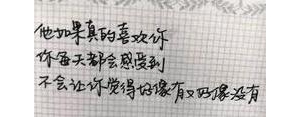 他如果真的喜欢你
你每天都会感受到
不会让你觉得好像有又好像没有